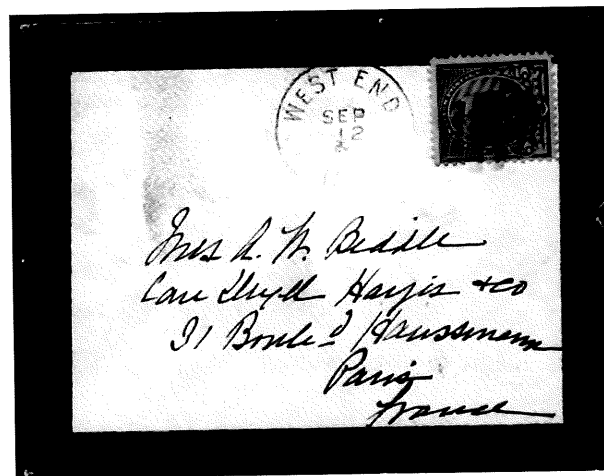 WEST END
SEP
12
Mrs A. W. Biddle
Care Drexel Harjes & Co
31 Boule d Haussmann
Paris
France